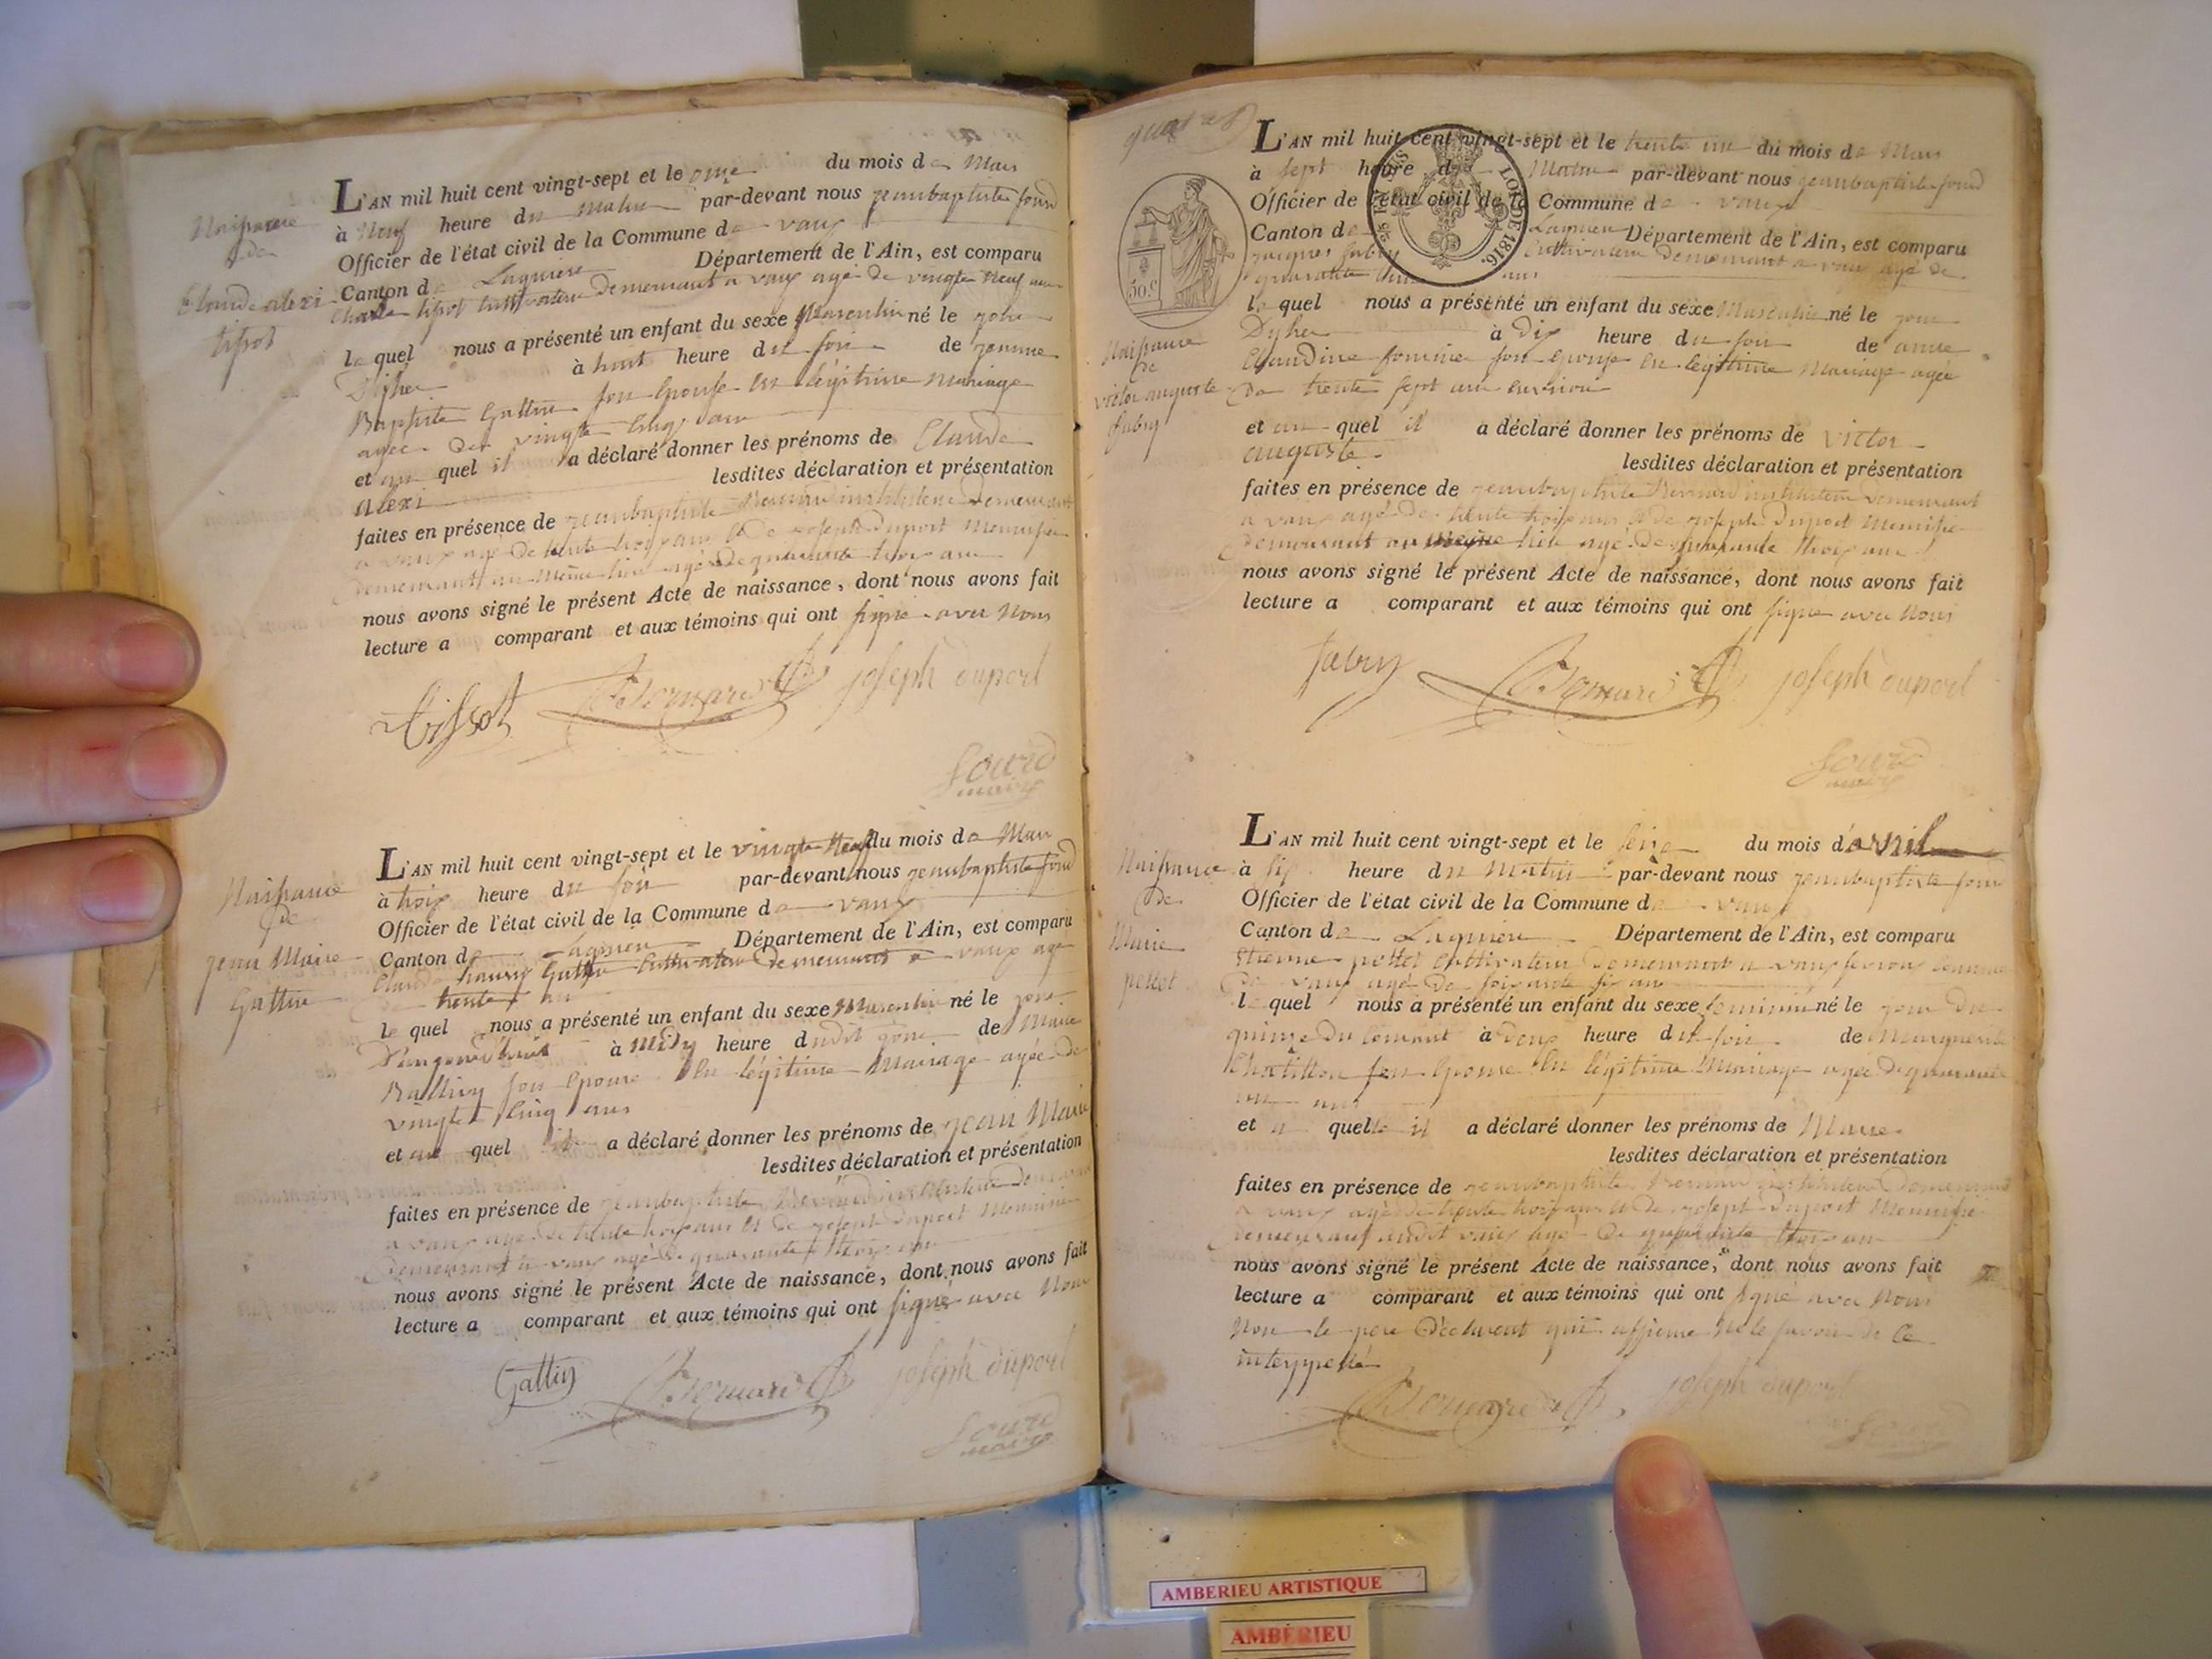 Naissance
de
Claude alexi
tissot
L'AN mil huit cent vingt-sept et le onze du mois de Mars
à Neuf heure du matin par-devant nous jeanbaptiste fourd
Officier de l'état civil de la Commune de vaux
Canton de Lagnieu Département de l'Ain, est comparu
Charle tissot Cultivateur demeurant a vaux agé de vingte neuf ans
le quel nous a présenté un enfant du sexe Masculin né le jour
D'yher à huit heure du soir de jeanne
Baptiste Gattin son Epouse en légitime Mariage
agée de vingte Cinq ans
et au quel il a déclaré donner les prénoms de Claude
alexi lesdites déclaration et présentation
faites en présence de jeanbaptiste Bernard instituteur demeurant
a vaux agé de trente trois ans et de joseph duport Menuisier
demeurant au Même lieu agé de quarante trois ans
nous avons signé le présent Acte de naissance, dont nous avons fait
lecture a comparant et aux témoins qui ont signé avec Nous
tissot Bernard joseph duport
fourd
maire
Naissance
de
jean Marie
Gattin
L'AN mil huit cent vingt-sept et le vingte Neuf du mois de Mars
à trois heure du soir par-devant nous jeanbaptiste fourd
Officier de l'état civil de la Commune de vaux
Canton de Lagnieu Département de l'Ain, est comparu
Claude Gattin Cultivateur demeurant a vaux agé
de trente ans
le quel nous a présenté un enfant du sexe Masculin né le jour
D'aujourd'huit à Midy heure dudit jour de Marie
son Epouse En légitime Mariage agée de
vingte Cinq ans
et au quel il a déclaré donner les prénoms de jean Marie
lesdites déclaration et présentation
faites en présence de jeanbaptiste Bernard instituteur demeurant
a vaux agé de trente trois ans et de joseph duport Menuisier
demeurant a vaux agé de quarante trois ans
nous avons signé le présent Acte de naissance, dont nous avons fait
lecture a comparant et aux témoins qui ont signé avec Nous
Gattin Bernard joseph duport
fourd
maire
50.C
LOI DE 1816.
Naissance
de
victor auguste
fabry
L'AN mil huit cent vingt-sept et le trente un du mois de Mars
à sept heure du Matin par-devant nous jeanbaptiste fourd
Officier de l'état civil de la Commune de vaux
Canton de Lagnieu Département de l'Ain, est comparu
jacques fabry Cultivateur demeurant a vaux agé de
quarante ans
le quel nous a présenté un enfant du sexe Masculin né le jour
D'yher à Dix heure du soir de anne
Claudine son Epouse En légitime Mariage agée
de trente sept ans environ
et au quel il a déclaré donner les prénoms de victor
auguste lesdites déclaration et présentation
faites en présence de jeanbaptiste Bernard instituteur demeurant
a vaux agé de trente trois ans et de joseph Duport Menuisier
demeurant au Même lieu agé de quarante trois ans
nous avons signé le présent Acte de naissance, dont nous avons fait
lecture a comparant et aux témoins qui ont signé avec Nous
fabry Bernard joseph duport
fourd
maire
Naissance
de
Marie
pettet
L'AN mil huit cent vingt-sept et le seize du mois d'avril
à six heure du Matin par-devant nous jeanbaptiste fourd
Officier de l'état civil de la Commune de vaux
Canton de Lagnieu Département de l'Ain, est comparu
Etienne pettet Cultivateur demeurant a vaux
de vaux agé de soixante six ans
le quel nous a présenté un enfant du sexe feminin né le jour du
quinze du Courant à Deux heure du soir de Marguerite
Chatillon son Epouse En légitime Mariage agée de quarante
un ans
et a quelle il a déclaré donner les prénoms de Marie
lesdites déclaration et présentation
faites en présence de jeanbaptiste Bernard instituteur demeurant
a vaux agé de trente trois ans et de joseph Duport Menuisier
demeurant audit vaux agé de quarante trois ans
nous avons signé le présent Acte de naissance, dont nous avons fait
lecture a comparant et aux témoins qui ont signé avec Nous
Non le pere declarent qui affirme Ne le savoir de Ce
interppellé
Bernard joseph duport
fourd
AMBERIEU ARTISTIQUE
AMBÉRIEU